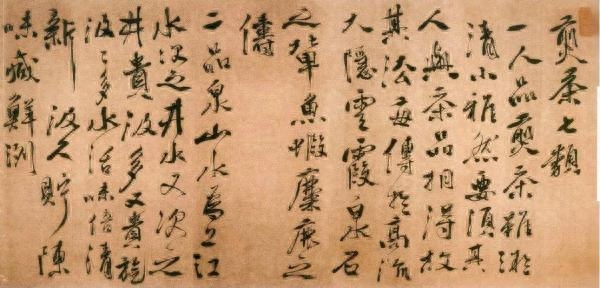 煎茶七類
一人品煎茶雖微
清小雅然要須其
人與茶品相得故
其法每傳於高流
大隱雲霞泉石
之輩魚蝦麋鹿之
儔
二品泉山水為上江
水次之井水又次之
井貴汲多又貴旋
汲〻多水活味倍清
新汲久貯陳
味減鮮冽